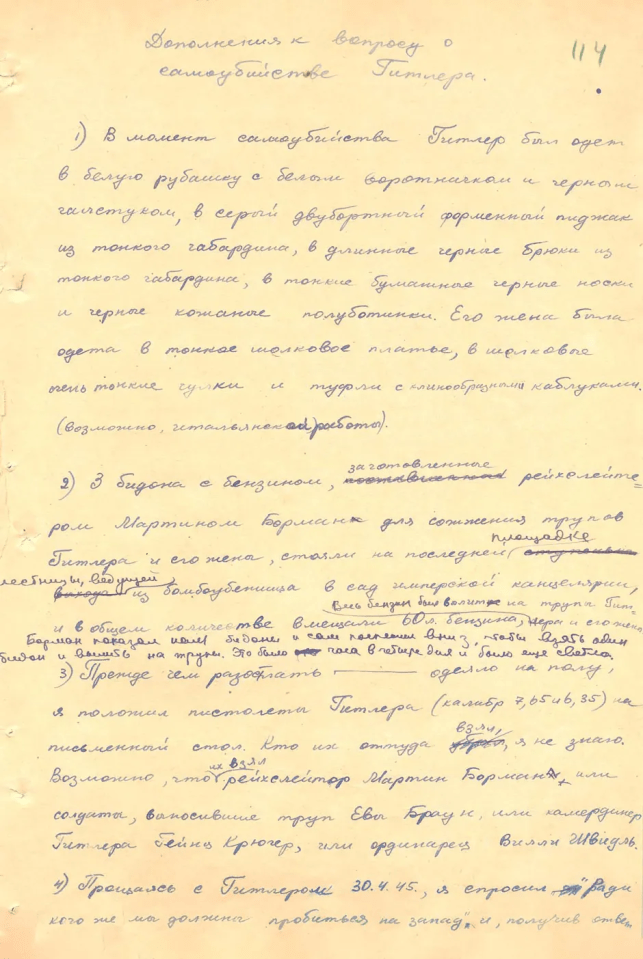 Дополнения к вопросу о
114
самоубийстве Гитлера.
1) В момент самоубийства Гитлер был одет
в белую рубашку с белым воротничком и черным
галстуком, в серый двубортный форменный пиджак
из тонкого габардина, в длинные черные брюки из
тонкого габардина, в тонкие бумажные черные носки
и черные кожаные полуботинки. Его жена была
одета в тонкое шелковое платье, в шелковые
очень тонкие чулки и туфли с клинообразными каблуками.
(возможно, итальянской работы).
заготовленные
2) 3 бидона с бензином, рейхслейте=
ром Мартином Борман для сожжения трупов
площадке
Гитлера и его жены, стояли на последней
лестницы, ведущей
из бомбоубежища в сад имперской канцелярии,
Весь бензин был вылит на трупы Гит-
и в общем количестве вмещали 60 л. бензина, лера и его жены
Борман показал мне бидоны и сам поспешил вниз, чтобы взять один
бидон и вылить на трупы. Это было часа в четыре дня и было еще светло.
3) Прежде чем разостлать одеяло на полу,
я положил пистолеты Гитлера (калибр 7,65 и 6,35) на
взял,
письменный стол. Кто их оттуда я не знаю.
их взял
Возможно, что рейхслейтор Мартин Борман, или
солдаты, выносившие труп Евы Браун, или камердинер
Гитлера Гейнц Крюгер, или ординарец Вилли Швидль.
4) Прощаясь с Гитлером 30.4.45., я спросил "Ради
кого же мы должны пробиться на запад", и, получив ответ